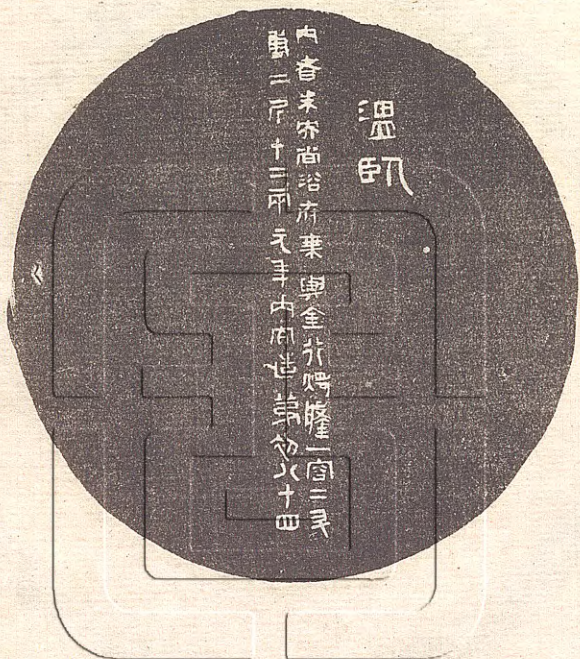 溫臥
內者未央尚浴府乘輿金行燭鐙一容二升
重二斤十二兩元年內官造第初八十四